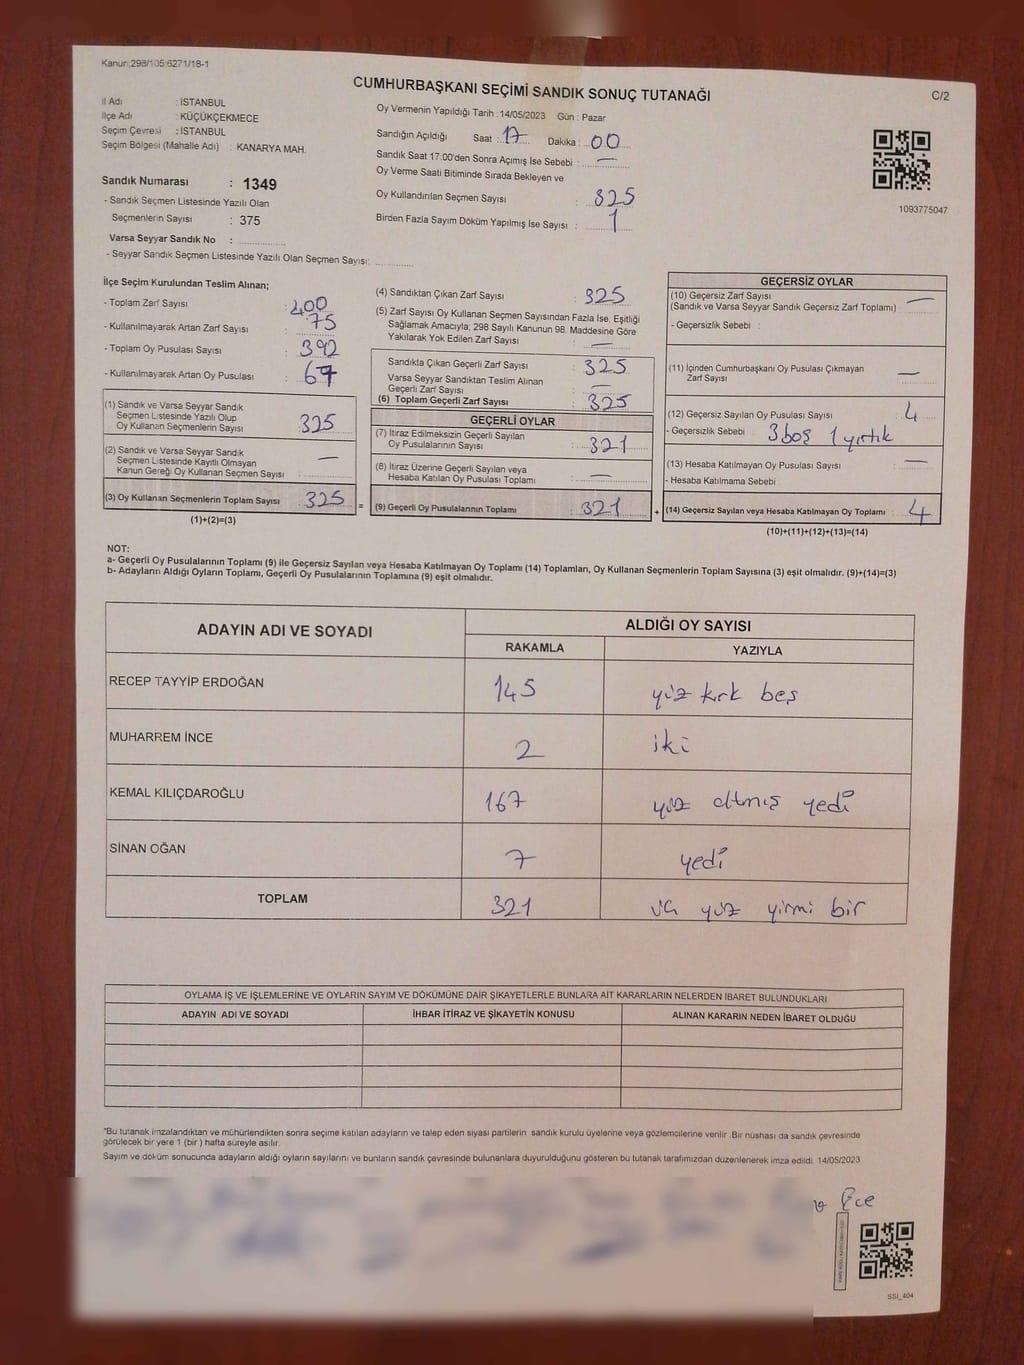 Kanun:298/105;6271/18-1
CUMHURBAŞKANI SEÇİMİ SANDIK SONUÇ TUTANAĞI
C/2
İl Adı : İSTANBUL
İlçe Adı : KÜÇÜKÇEKMECE
Seçim Çevresi : İSTANBUL
Seçim Bölgesi (Mahalle Adı) : KANARYA MAH.
Sandık Numarası : 1349
- Sandık Seçmen Listesinde Yazılı Olan
Seçmenlerin Sayısı : 375
Varsa Seyyar Sandık No : ..............
- Seyyar Sandık Seçmen Listesinde Yazılı Olan Seçmen Sayısı: ............
Oy Vermenin Yapıldığı Tarih : 14/05/2023 Gün : Pazar
Sandığın Açıldığı Saat : 17 Dakika : 00
Sandık Saat 17:00'den Sonra Açımış İse Sebebi : —
Oy Verme Saati Bitiminde Sırada Bekleyen ve
Oy Kullandırılan Seçmen Sayısı : 325
Birden Fazla Sayım Döküm Yapılmış İse Sayısı : 1
1093775047
İlçe Seçim Kurulundan Teslim Alınan;
- Toplam Zarf Sayısı : 400
- Kullanılmayarak Artan Zarf Sayısı : 75
- Toplam Oy Pusulası Sayısı : 392
- Kullanılmayarak Artan Oy Pusulası : 67
(1) Sandık ve Varsa Seyyar Sandık
Seçmen Listesinde Yazılı Olup
Oy Kullanan Seçmenlerin Sayısı : 325
(2) Sandık ve Varsa Seyyar Sandık
Seçmen Listesinde Kayıtlı Olmayan
Kanun Gereği Oy Kullanan Seçmen Sayısı : —
(3) Oy Kullanan Seçmenlerin Toplam Sayısı : 325
(1)+(2)=(3)
=
(4) Sandıktan Çıkan Zarf Sayısı : 325
(5) Zarf Sayısı Oy Kullanan Seçmen Sayısından Fazla İse, Eşitliği
Sağlamak Amacıyla; 298 Sayılı Kanunun 98. Maddesine Göre
Yakılarak Yok Edilen Zarf Sayısı : —
Sandıkta Çıkan Geçerli Zarf Sayısı : 325
Varsa Seyyar Sandıktan Teslim Alınan
Geçerli Zarf Sayısı : —
(6) Toplam Geçerli Zarf Sayısı : 325
GEÇERLİ OYLAR
(7) İtiraz Edilmeksizin Geçerli Sayılan
Oy Pusulalarının Sayısı : 321
(8) İtiraz Üzerine Geçerli Sayılan veya
Hesaba Katılan Oy Pusulası Toplamı : —
(9) Geçerli Oy Pusulalarının Toplamı : 321
+
GEÇERSİZ OYLAR
(10) Geçersiz Zarf Sayısı : —
(Sandık ve Varsa Seyyar Sandık Geçersiz Zarf Toplamı)
- Geçersizlik Sebebi :
(11) İçinden Cumhurbaşkanı Oy Pusulası Çıkmayan
Zarf Sayısı : —
(12) Geçersiz Sayılan Oy Pusulası Sayısı : 4
- Geçersizlik Sebebi : 3 boş 1 yırtık
(13) Hesaba Katılmayan Oy Pusulası Sayısı : —
- Hesaba Katılmama Sebebi
(14) Geçersiz Sayılan veya Hesaba Katılmayan Oy Toplamı : 4
(10)+(11)+(12)+(13)=(14)
NOT:
a- Geçerli Oy Pusulalarının Toplamı (9) ile Geçersiz Sayılan veya Hesaba Katılmayan Oy Toplamı (14) Toplamları, Oy Kullanan Seçmenlerin Toplam Sayısına (3) eşit olmalıdır. (9)+(14)=(3)
b- Adayların Aldığı Oyların Toplamı, Geçerli Oy Pusulalarının Toplamına (9) eşit olmalıdır.
ADAYIN ADI VE SOYADI
ALDIĞI OY SAYISI
RAKAMLA YAZIYLA
RECEP TAYYİP ERDOĞAN 145 yüz kırk beş
MUHARREM İNCE 2 iki
KEMAL KILIÇDAROĞLU 167 yüz altmış yedi
SİNAN OĞAN 7 yedi
TOPLAM 321 üç yüz yirmi bir
OYLAMA İŞ VE İŞLEMLERİNE VE OYLARIN SAYIM VE DÖKÜMÜNE DAİR ŞİKAYETLERLE BUNLARA AİT KARARLARIN NELERDEN İBARET BULUNDUKLARI
ADAYIN ADI VE SOYADI İHBAR İTİRAZ VE ŞİKAYETİN KONUSU ALINAN KARARIN NEDEN İBARET OLDUĞU
*Bu tutanak imzalandıktan ve mühürlendikten sonra seçime katılan adayların ve talep eden siyasi partilerin sandık kurulu üyelerine veya gözlemcilerine verilir .Bir nüshası da sandık çevresinde
görülecek bir yere 1 (bir ) hafta süreyle asılır.
Sayım ve döküm sonucunda adayların aldığı oyların sayılarını ve bunların sandık çevresinde bulunanlara duyurulduğunu gösteren bu tutanak tarafımızdan düzenlenerek imza edildi. 14/05/2023
Ece
SSI_404